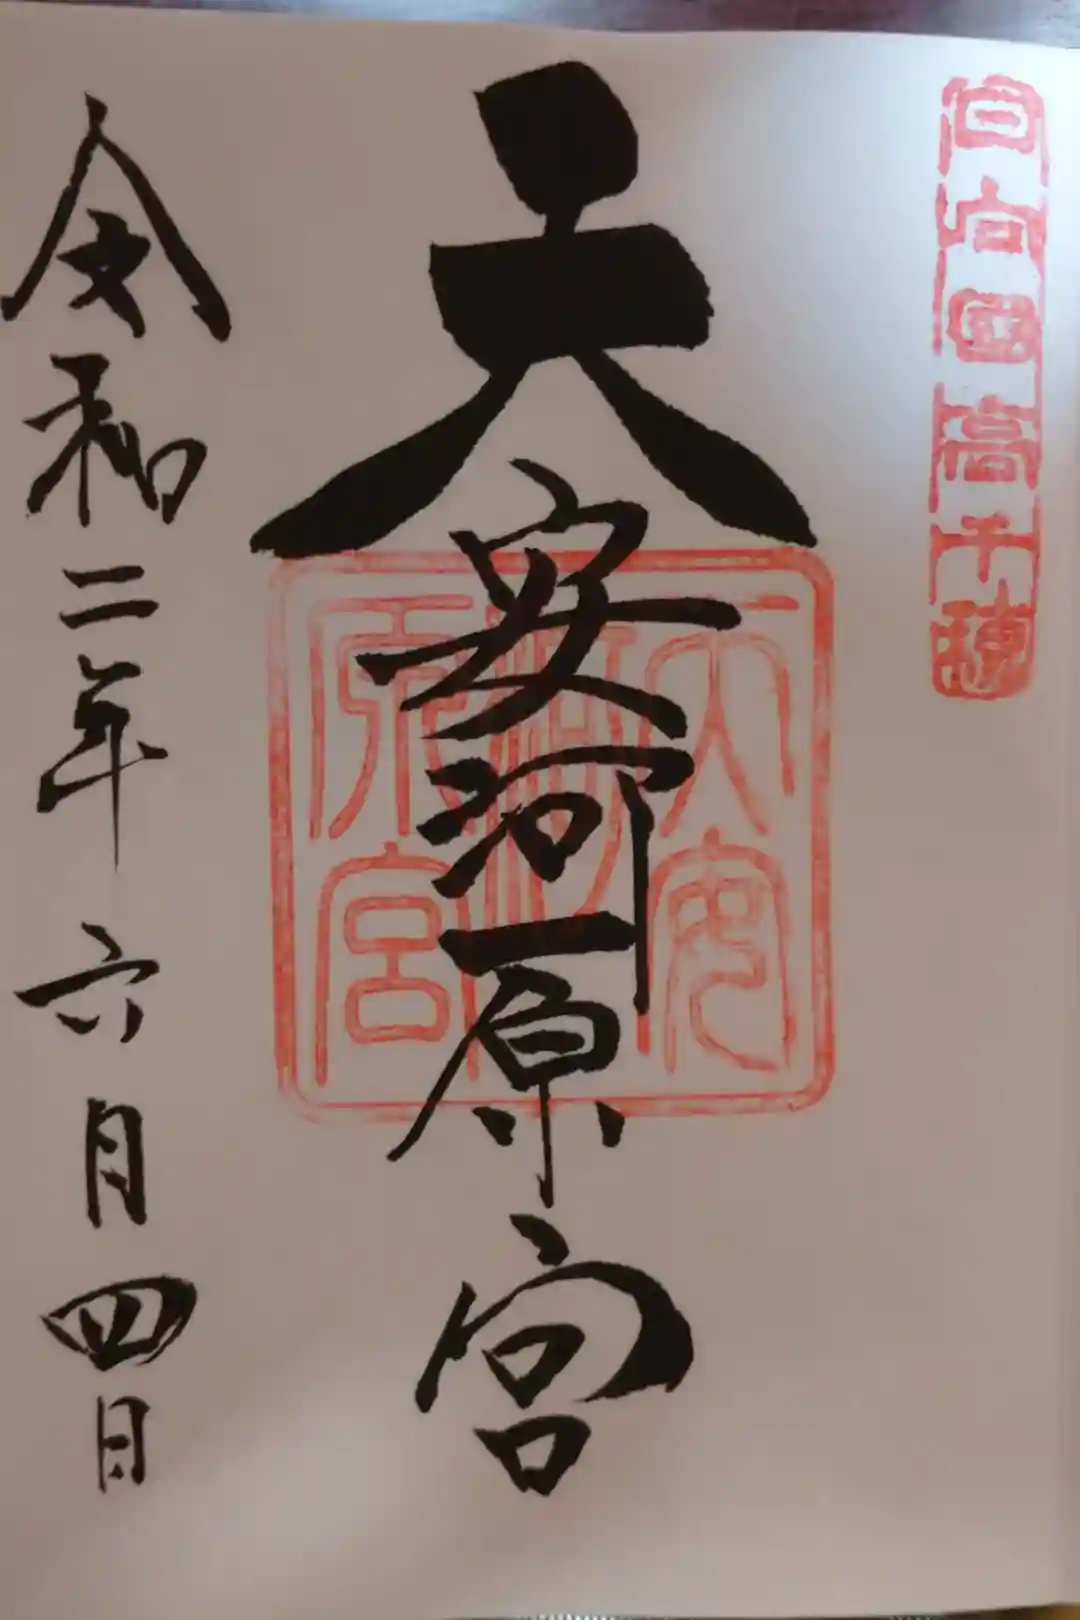 日向國高千穂
天安河原宮
天安河原宮
令和二年六月四日